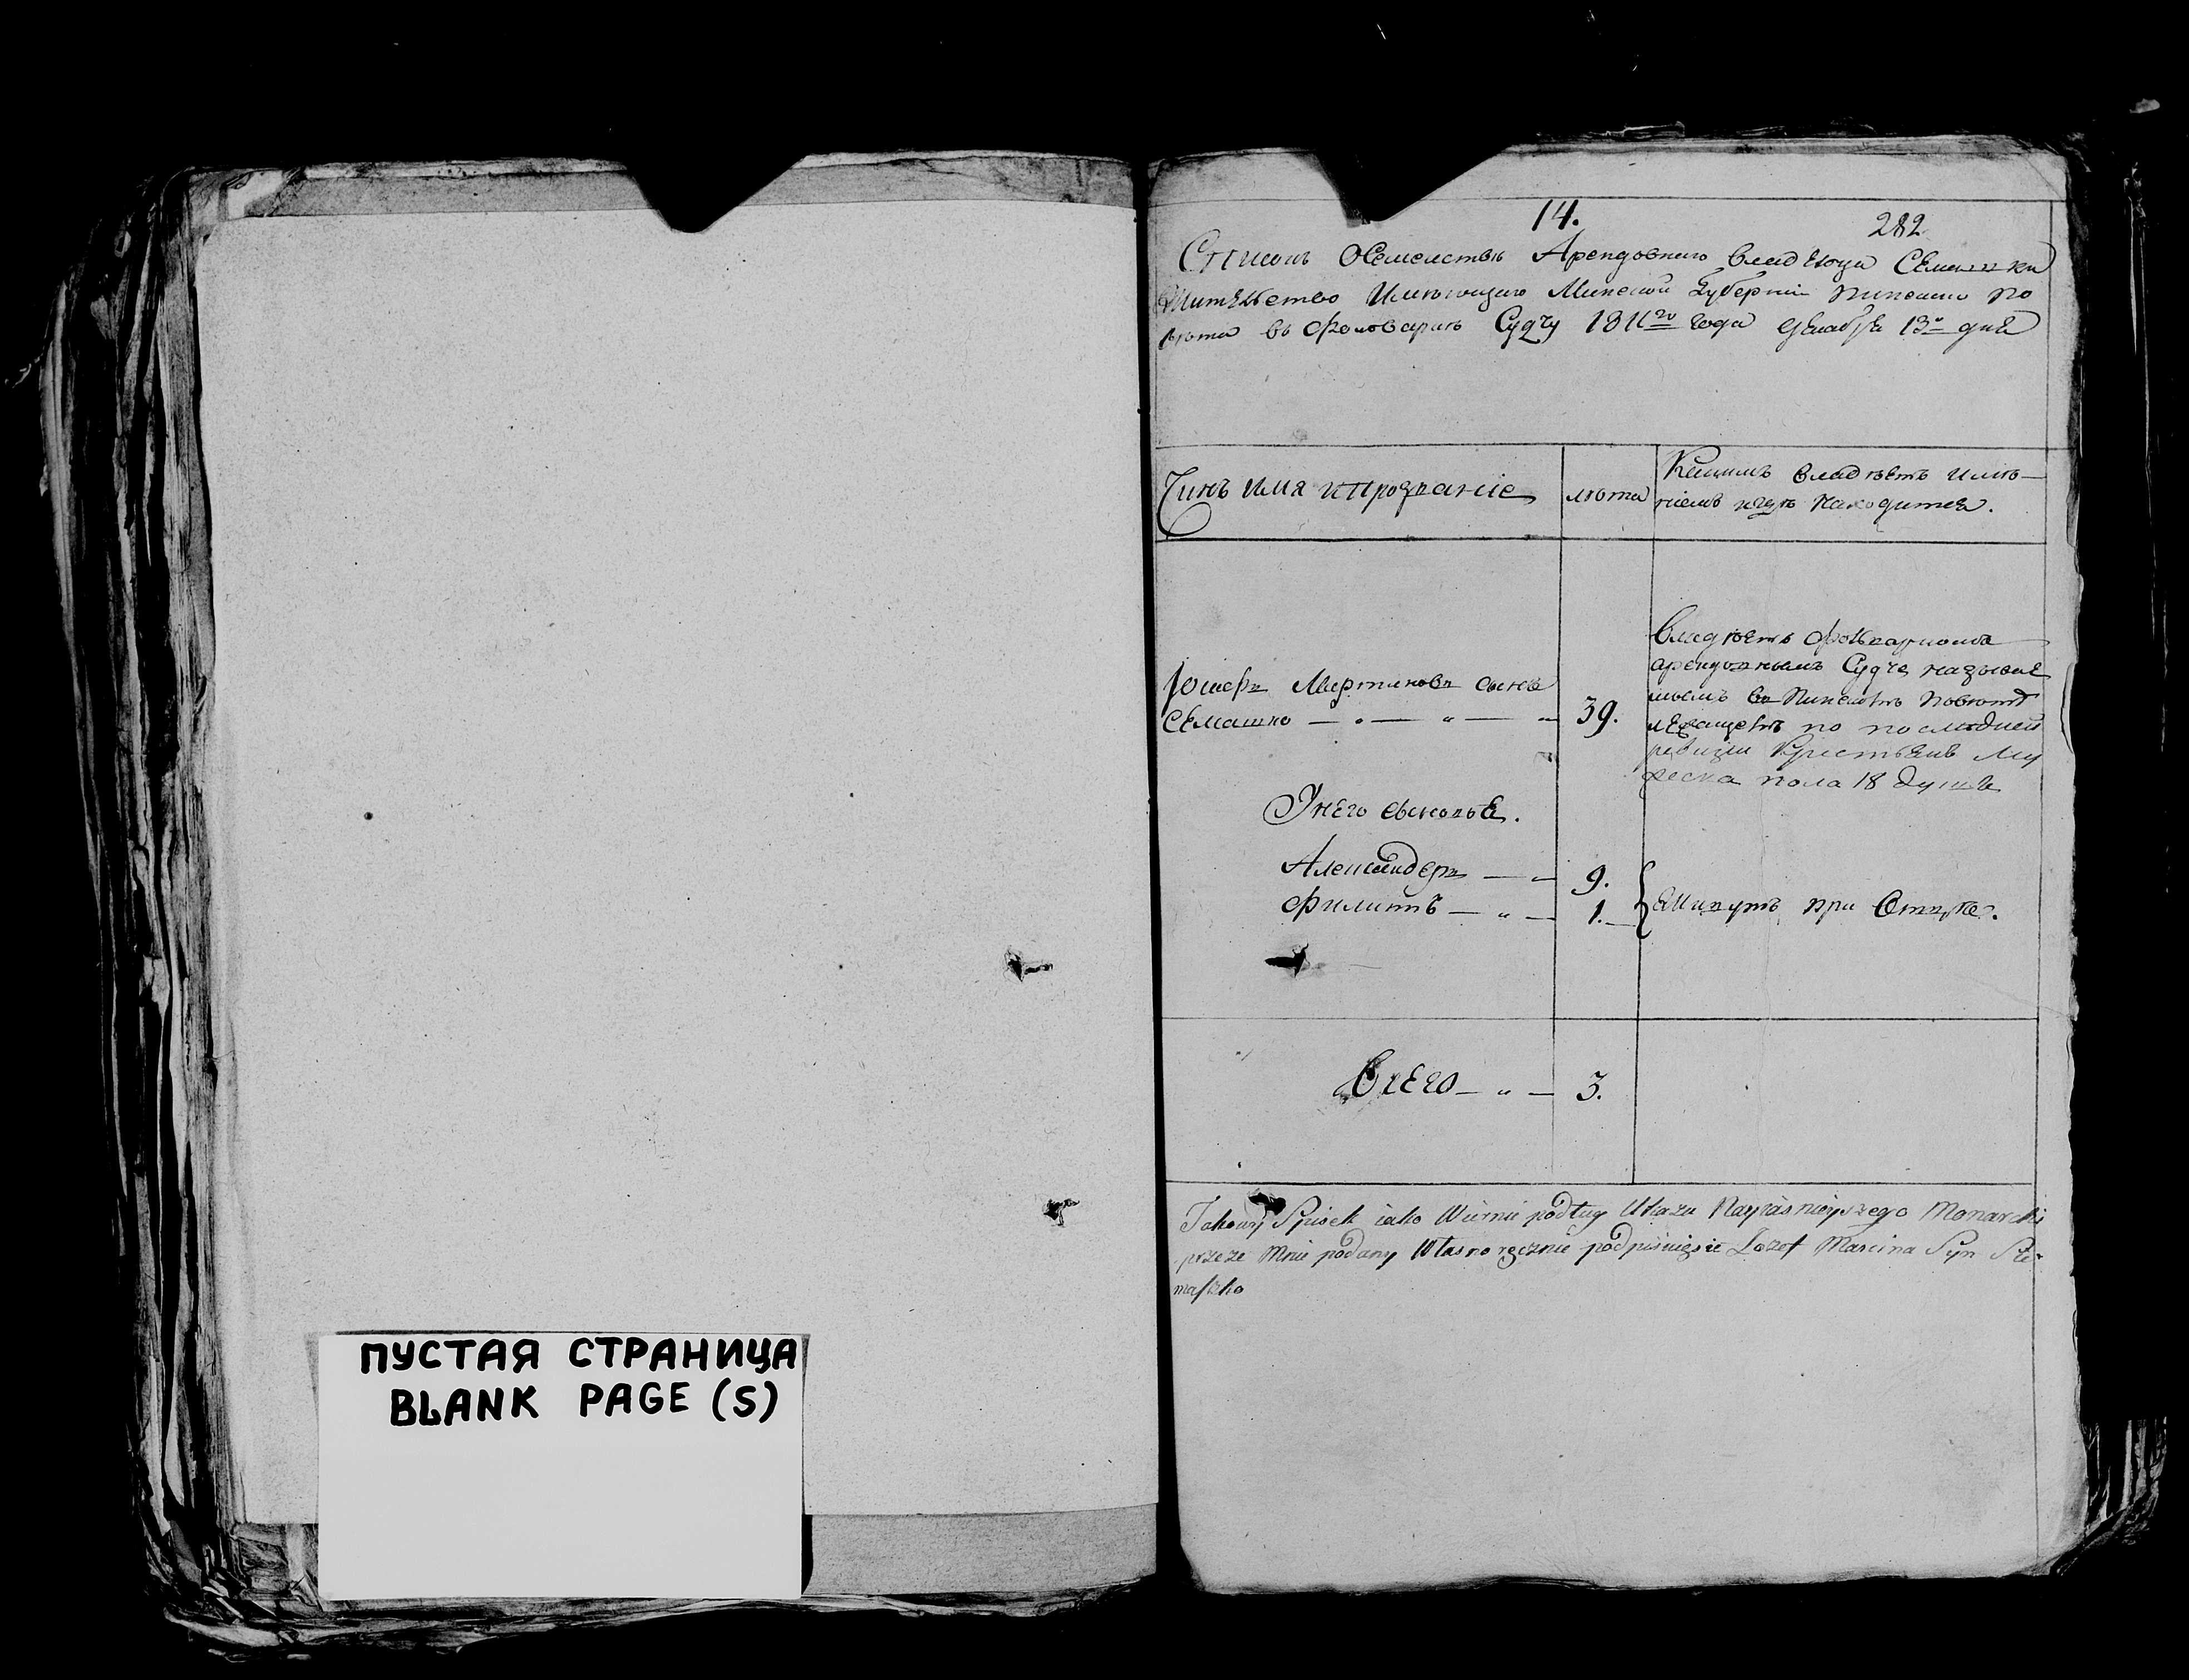 ПУСТАЯ СТРАНИЦА
BLANK PAGE (S)
14.
282
Списокъ О Семействѣ Арендовнаго владѣлца Семашки
Жителство Имѣющаго Минской Губерніи Пинскаго По
вѣта въ Фолварку Судчу 1811го года декабря 13о дня
Чинъ имя и Прозваніе
лѣта
Каким владѣетъ имѣ-
ніемъ и гдѣ Находится.
Юзефъ Мартиновъ сынъ
Семашко
39.
владѣетъ фолваркомъ
арендовнымъ Судче называе
мымъ въ Пинскомъ Повѣтѣ
по последней
ревизіи Крестьянъ Му
жеска пола 18 душъ
У него сыновья.
Александеръ
9.
Филипъ
1.
живутъ при Отцѣ.
Всего
3.
Takowy Spisek iako Wiernie podług Ukazu Nayiasnieyszego Monarchi
przeze Mnie podany Własno ręcznie podpisuię się Józef Marcina Syn Sie-
maszko